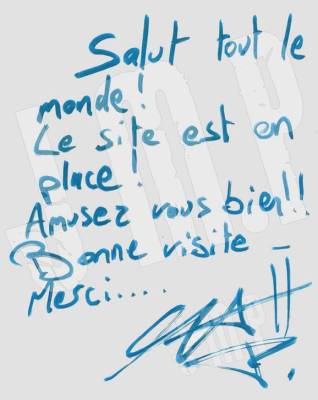 Salut tout le
monde!
Le site est en
place!
Amusez vous bien!!
Bonne visite -
Merci.....